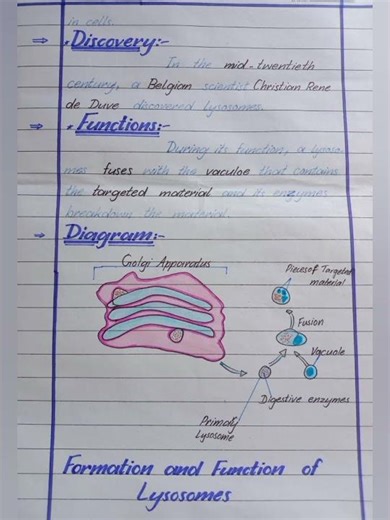 in cells.
⇒ • Discovery:-
In the mid-twentieth
century, a Belgian scientist Christian Rene
de Duve discovered lysosomes.
⇒ • Functions:-
During its function, a lysoso-
mes fuses with the vaculoe that contains
the targeted material and its enzymes
breakdown the material.
⇒ Diagram:-
Golgi Apparatus
Pieces of Targeted
material
Fusion
Vacuole
Digestive enzymes
Primary
Lysosome
Formation and Function of
Lysosomes